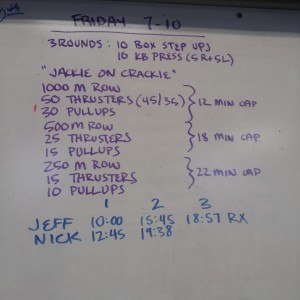 FRIDAY 7-10
3 ROUNDS: 10 BOX STEP UPS
10 KB PRESS (5R+5L)
"JACKIE ON CRACKIE"
1000 M ROW
50 THRUSTERS (45/35) } 12 MIN CAP
30 PULLUPS
500 M ROW
25 THRUSTERS } 18 MIN CAP
15 PULLUPS
250 M ROW
15 THRUSTERS } 22 MIN CAP
10 PULLUPS
1 2 3
JEFF 10:00 15:45 18:57 RX
NICK 12:45 19:38